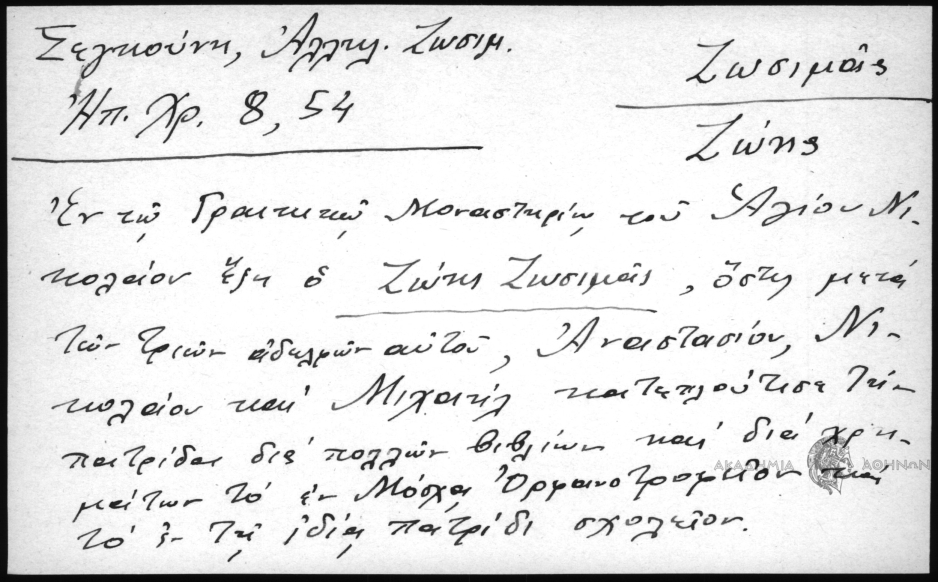 Σεγκούνη, Ἀλλη. Ζωσιμ.
Ἠπ. Χρ. 8, 54
Ζωσιμᾶς
Ζώης
Ἐν τῷ Γραικικῷ Μοναστηρίῳ τοῦ Ἁγίου Νι-
κολάου ἔζη ὁ Ζώης Ζωσιμᾶς, ὅστις μετά
τῶν τριῶν ἀδελφῶν αὐτοῦ, Ἀναστασίου, Νι-
κολάου καί Μιχαήλ κατεπλούτισε τήν
πατρίδα διά πολλῶν βιβλίων καί διά χρη-
μάτων τό ἐν Μόσχᾳ Ὀρφανοτροφεῖον καί
τό ἐν τῇ ἰδίᾳ πατρίδι σχολεῖον.
ΑΚΑΔΗΜΙΑ ΑΘΗΝΩΝ